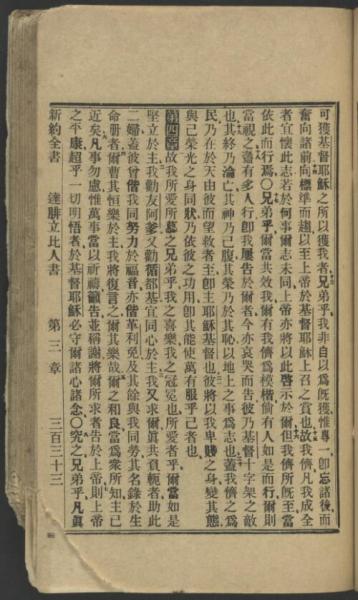 可獲基督耶穌之所以獲我者兄弟乎我非自以爲旣獲惟專一卽忘諸後而
奮向諸前向標準而趨以至上帝於基督耶穌上召之賞也故我儕凡我成全
者宜懷此志若於何事爾志未同上帝亦將以此啓示於爾但我儕所旣至當
依此而行焉〇兄弟乎爾當共效我爾有我儕爲模楷倘有人如是而行爾則
當視之蓋有多人行卽我屢告於爾者今亦哀哭而告彼乃基督十字架之敵
也其終乃淪亡其神乃己腹其榮乃於其恥以地上之事爲志也蓋我儕之爲
民乃在於天由彼而望救者主卽主耶穌基督也彼將以我卑賤之身變其態
與己榮光之身同狀乃依彼之功用卽其能使萬有服乎己者也
第四章故我所愛所慕之兄弟乎我之喜樂我之冠冕也所愛者乎爾當如是
堅立於主我勸友阿爹又勸循都基宜同心於主我又求爾眞共負軛者助此
二婦蓋彼曾偕我同努力於福音亦偕革利免及其餘與我同勞其名錄於生
命册者爾曹其恒樂於主我將復言之爾其樂哉爾之和良當爲衆所知主已
近矣凡事勿慮惟萬事當以祈禱籲告並稱謝將爾所求者告於上帝則上帝
之平康超乎一切明悟者於基督耶穌必守爾諸心諸念〇究之兄弟乎凡眞
新約全書 達腓立比人書 第三章 三百三十三